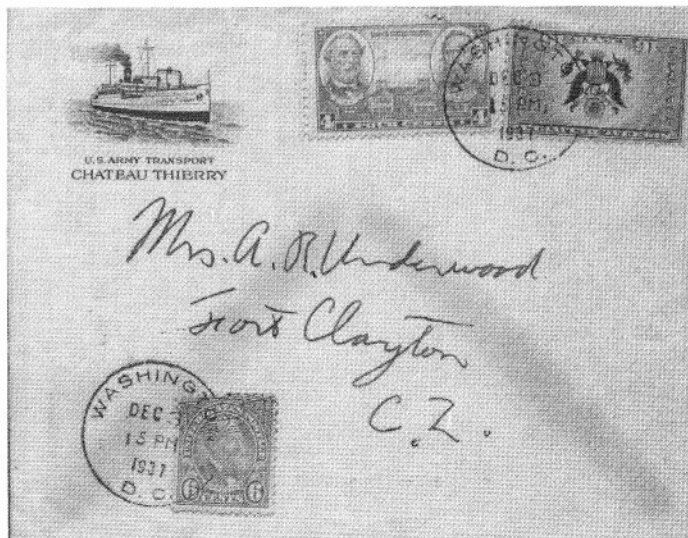 U.S. ARMY TRANSPORT
CHATEAU THIERRY
WASHINGTO
DEC 3
15 PM
1937
D. C.
4
16
Mrs. A. R. Underwood
Fort Clayton
C. Z.
WASHINGTO
DEC 3
15 PM
1937
D. C.
6 6